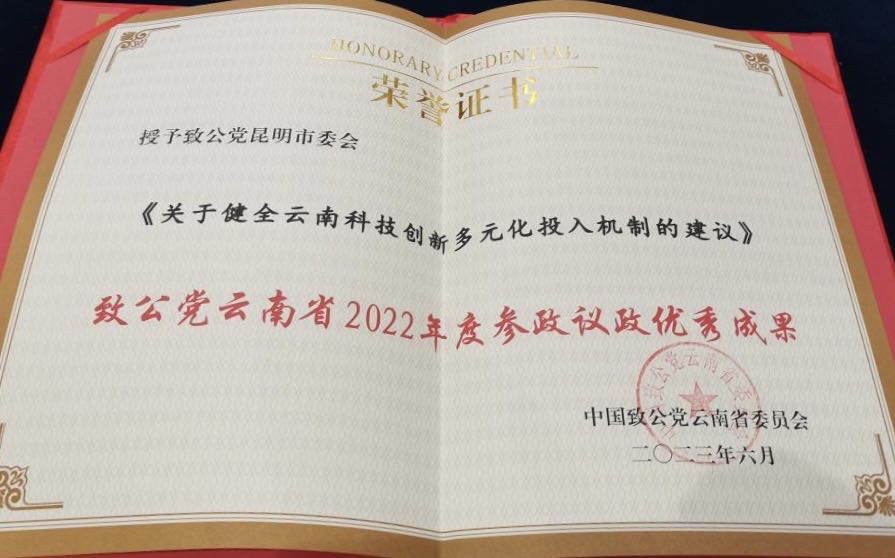 HONORARY CREDENTIAL
荣誉证书
授予致公党昆明市委会
《关于健全云南科技创新多元化投入机制的建议》
致公党云南省2022年度参政议政优秀成果
中国致公党云南省委员会
二〇二三年六月